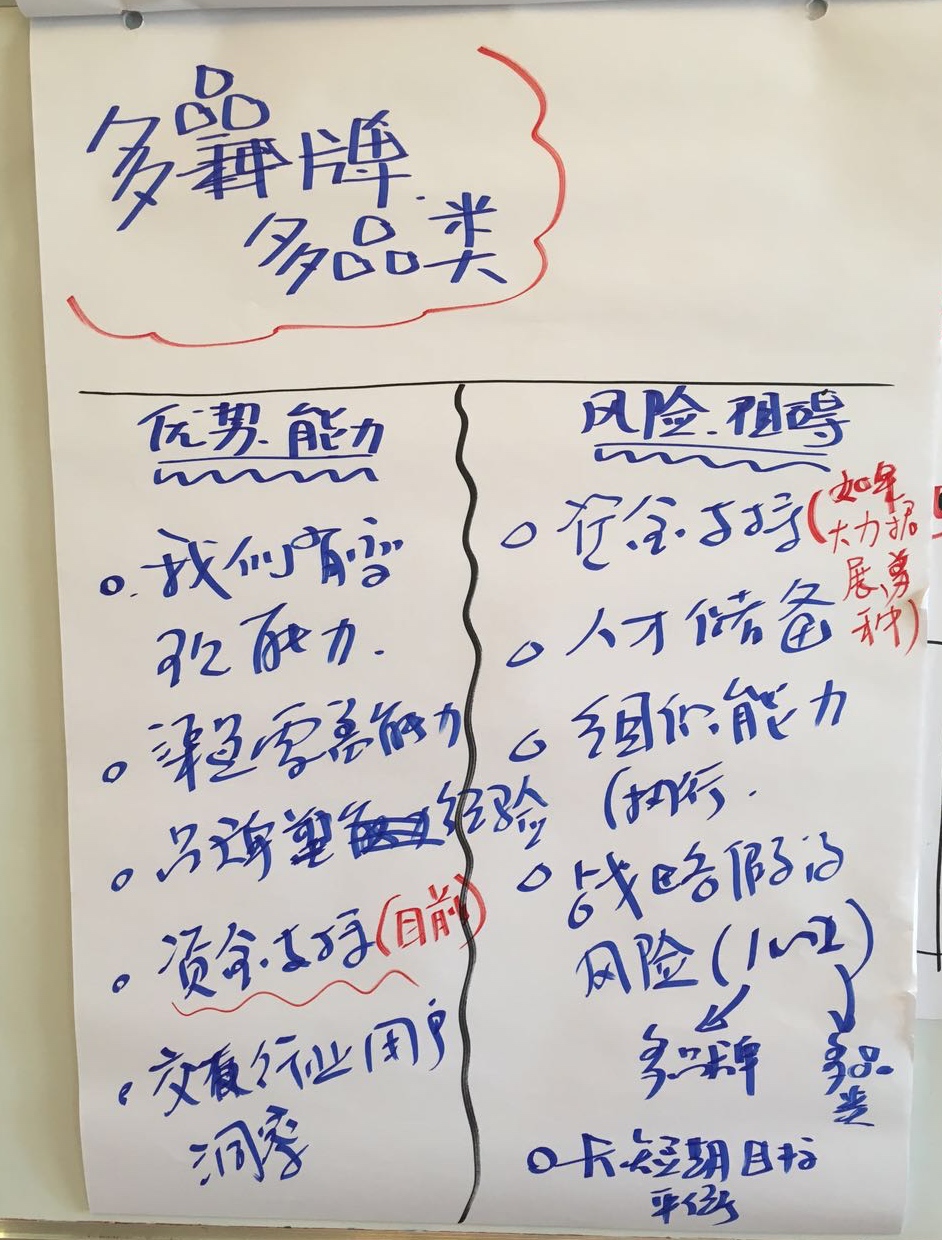 多品牌.
多品类
优势.能力
我们有
能力.
渠道零售能力
品牌塑 经验
资金支持(目前)
行业用户
洞察
风险.阻碍
资金支持(如果
大力
展
人才储备
组织能力
(执行.
战略假设
风险(1 2)
多品牌
多品
类
短期目标
平衡